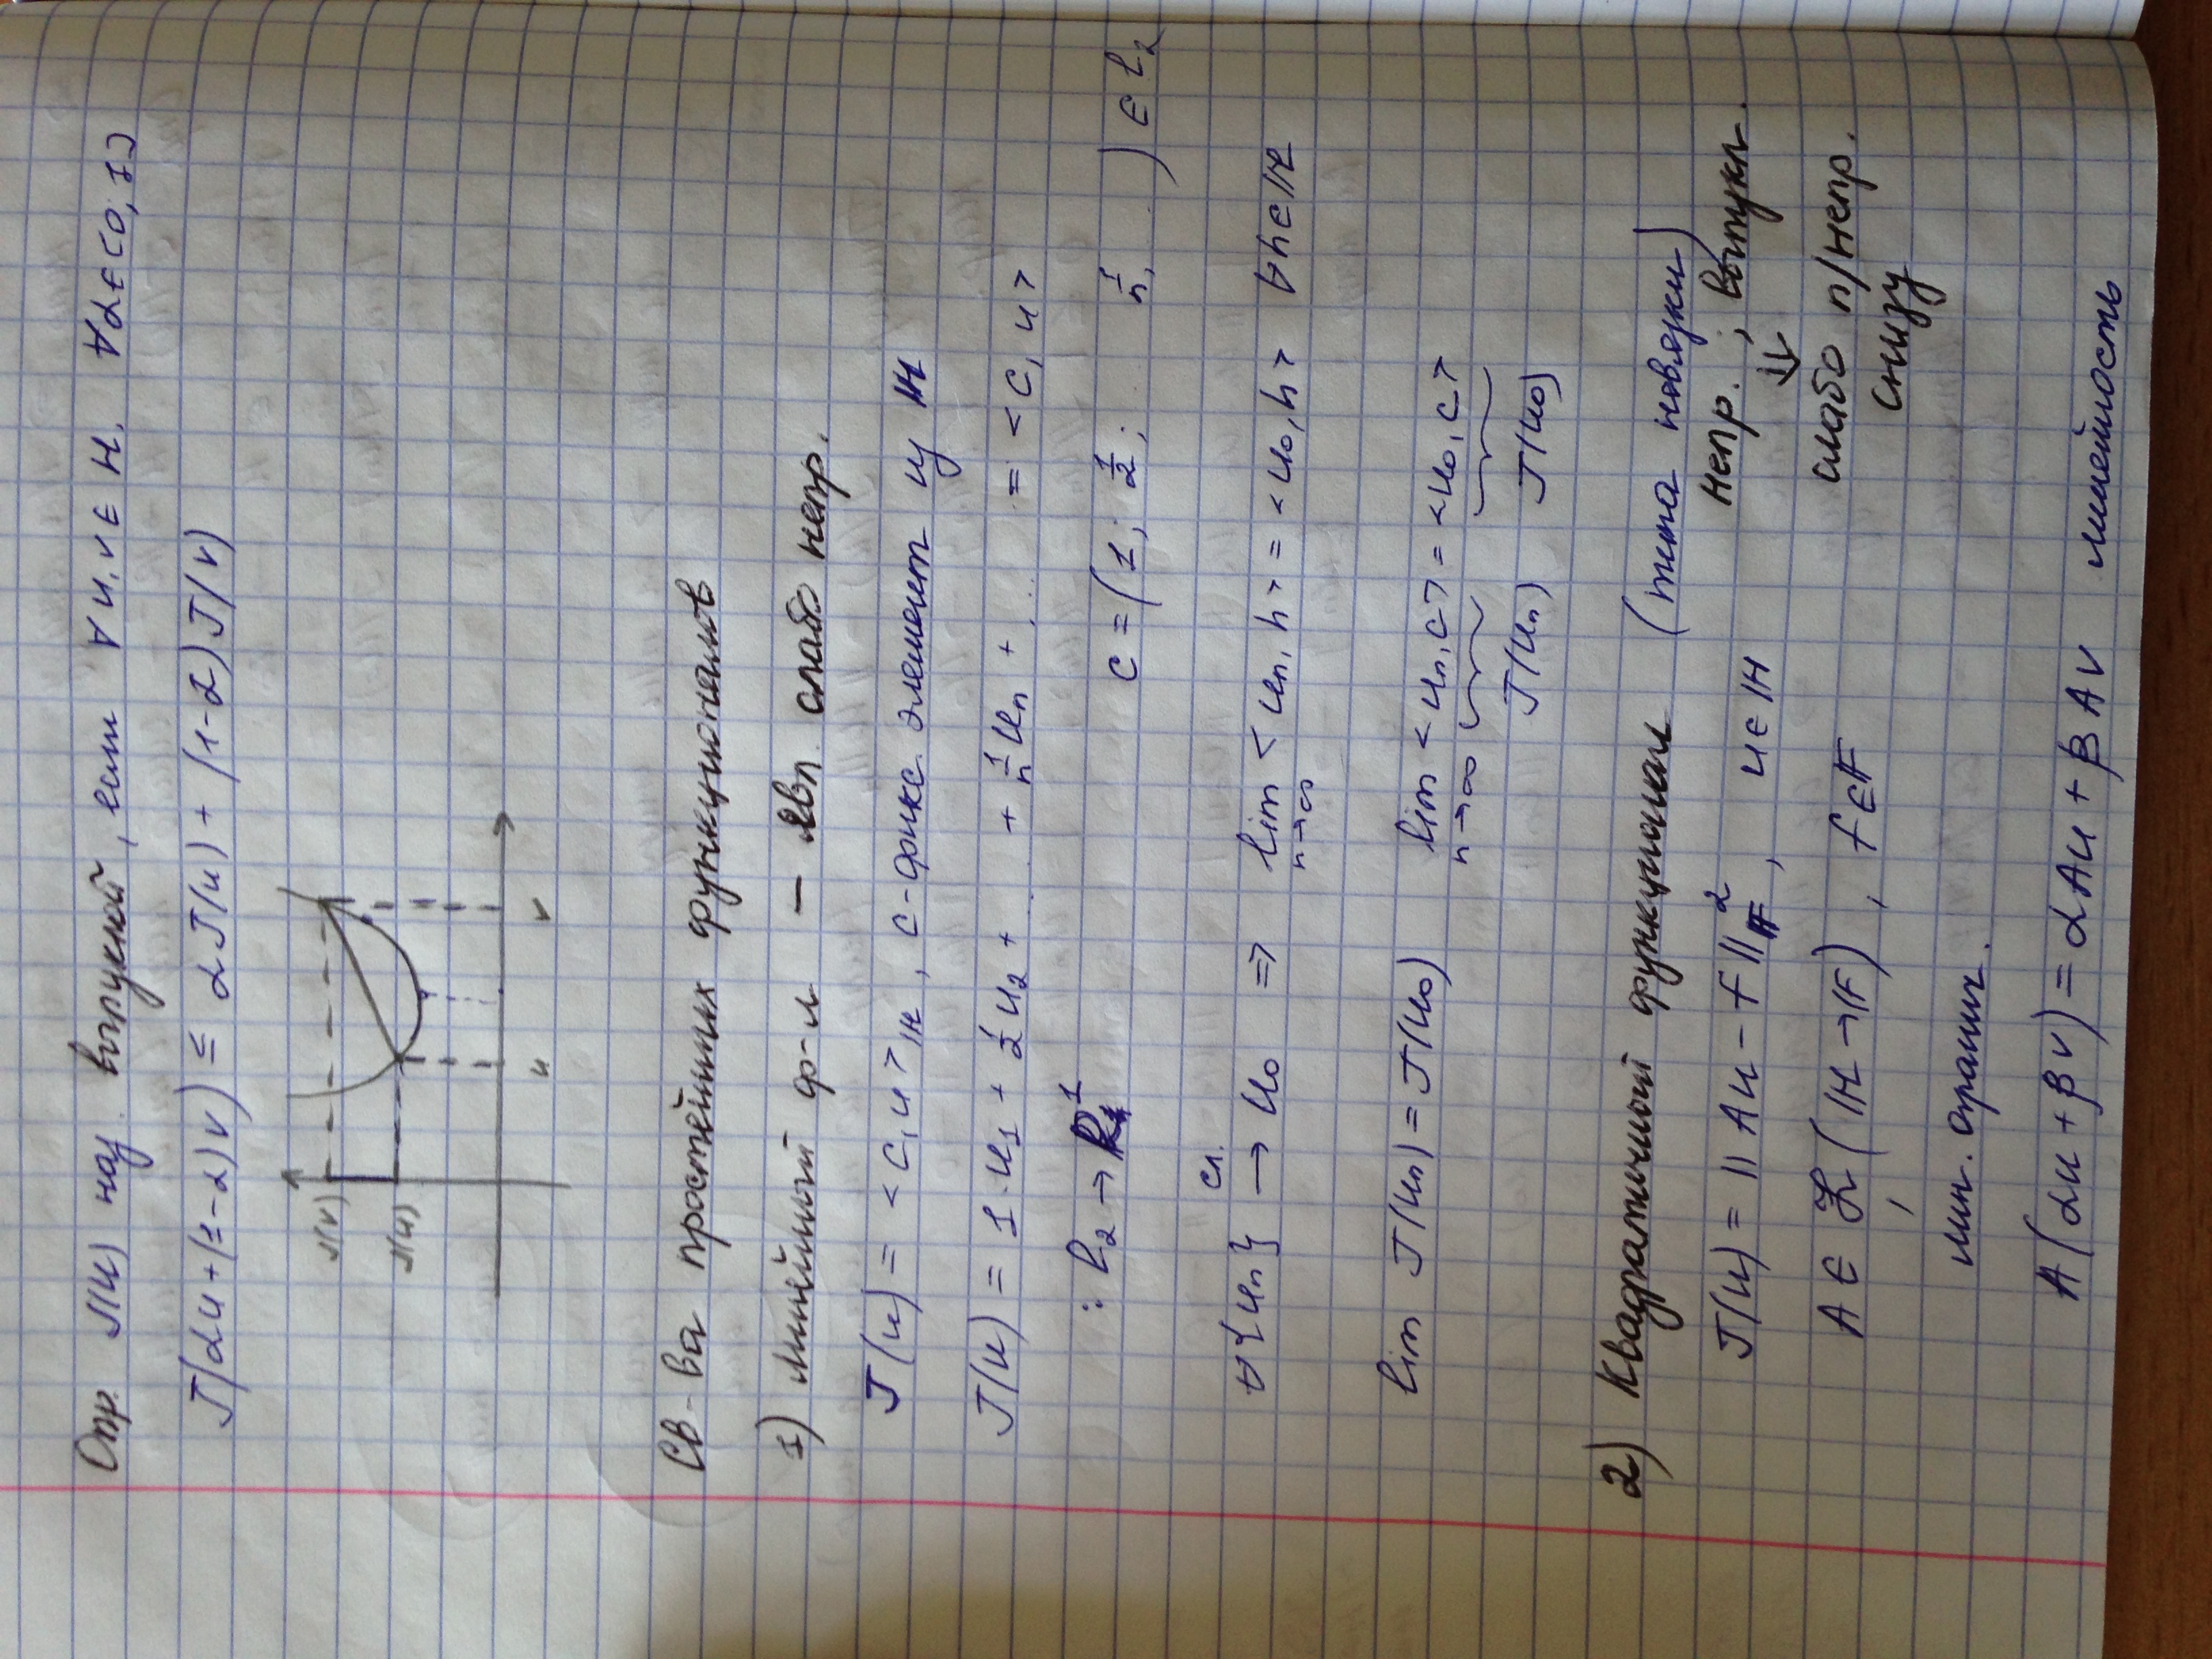 Опр. J(u) наз. выпуклой, если ∀ u, v ∈ H, ∀α∈[0;1]
J(αu+(1-α)v) ≤ αJ(u) + (1-α)J(v)
J(v)
J(u)
u v
Св-ва простейших функционалов
1) линейный ф-л — явл. слабо непр.
J(u) = <c, u>_H, c-фикс. элемент из H
J(u) = 1·u₁ + ½u₂ + ... + 1/n uₙ + ... = <c, u>
: l₂ → R¹ c = (1; ½; ... 1/n, ...) ∈ l₂
∀{uₙ} →(сл.) u₀ => lim_{n→∞} <uₙ, h> = <u₀, h> ∀h∈H
lim J(uₙ) = J(u₀) lim_{n→∞} <uₙ, c> = <u₀, c>
J(uₙ) J(u₀)
2) Квадратичный функционал (типа невязки)
J(u) = ||Au - f||²_F, u∈H непр.; выпукл.
⇓
A ∈ L(H→F), f∈F слабо п/непр.
снизу
лин. огранич.
A(αu + βv) = αAu + βAv линейность